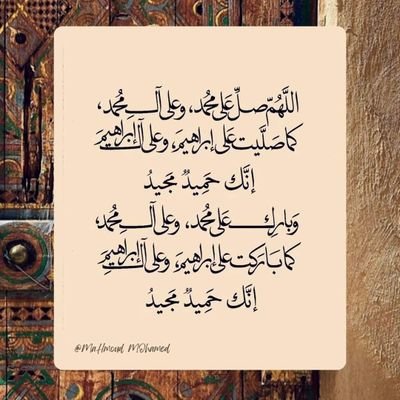 اللَّهُمَّ صلِّ عَلى مُحمد، وعلى آلِ مُحمد،
كما صَلَّيت عَلى إبراهيمَ، وعلى آلِ إبراهيمَ
إنَّك حَمِيدٌ مَجيدُ
وَبارِك عَلى مُحمد، وعلى آلِ مُحمد،
كما بَارَكت على إبراهيمَ، وعلى آلِ إبراهيمِ
إنَّك حَمِيدٌ مَجيدُ
@MaHmoud MOhamed